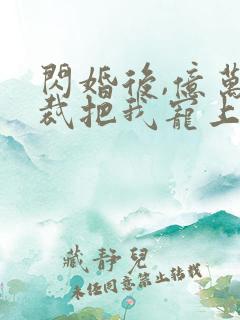 閃婚後,億萬
裁把我寵上
藏靜兒
未經同意禁止轉載